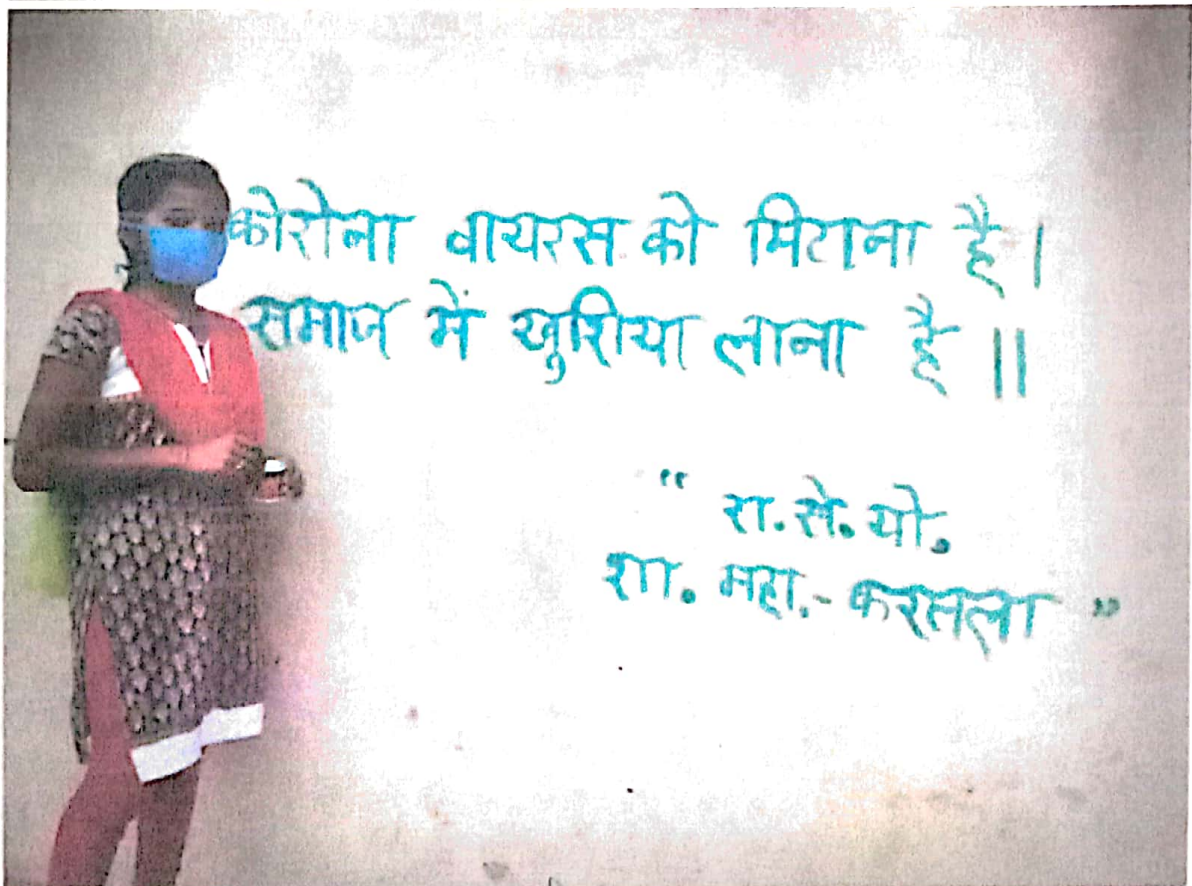 कोरोना वायरस को मिटाना है।
समाज में खुशिया लाना है ॥
" रा. से. यो.
शा. महा. - करतला "